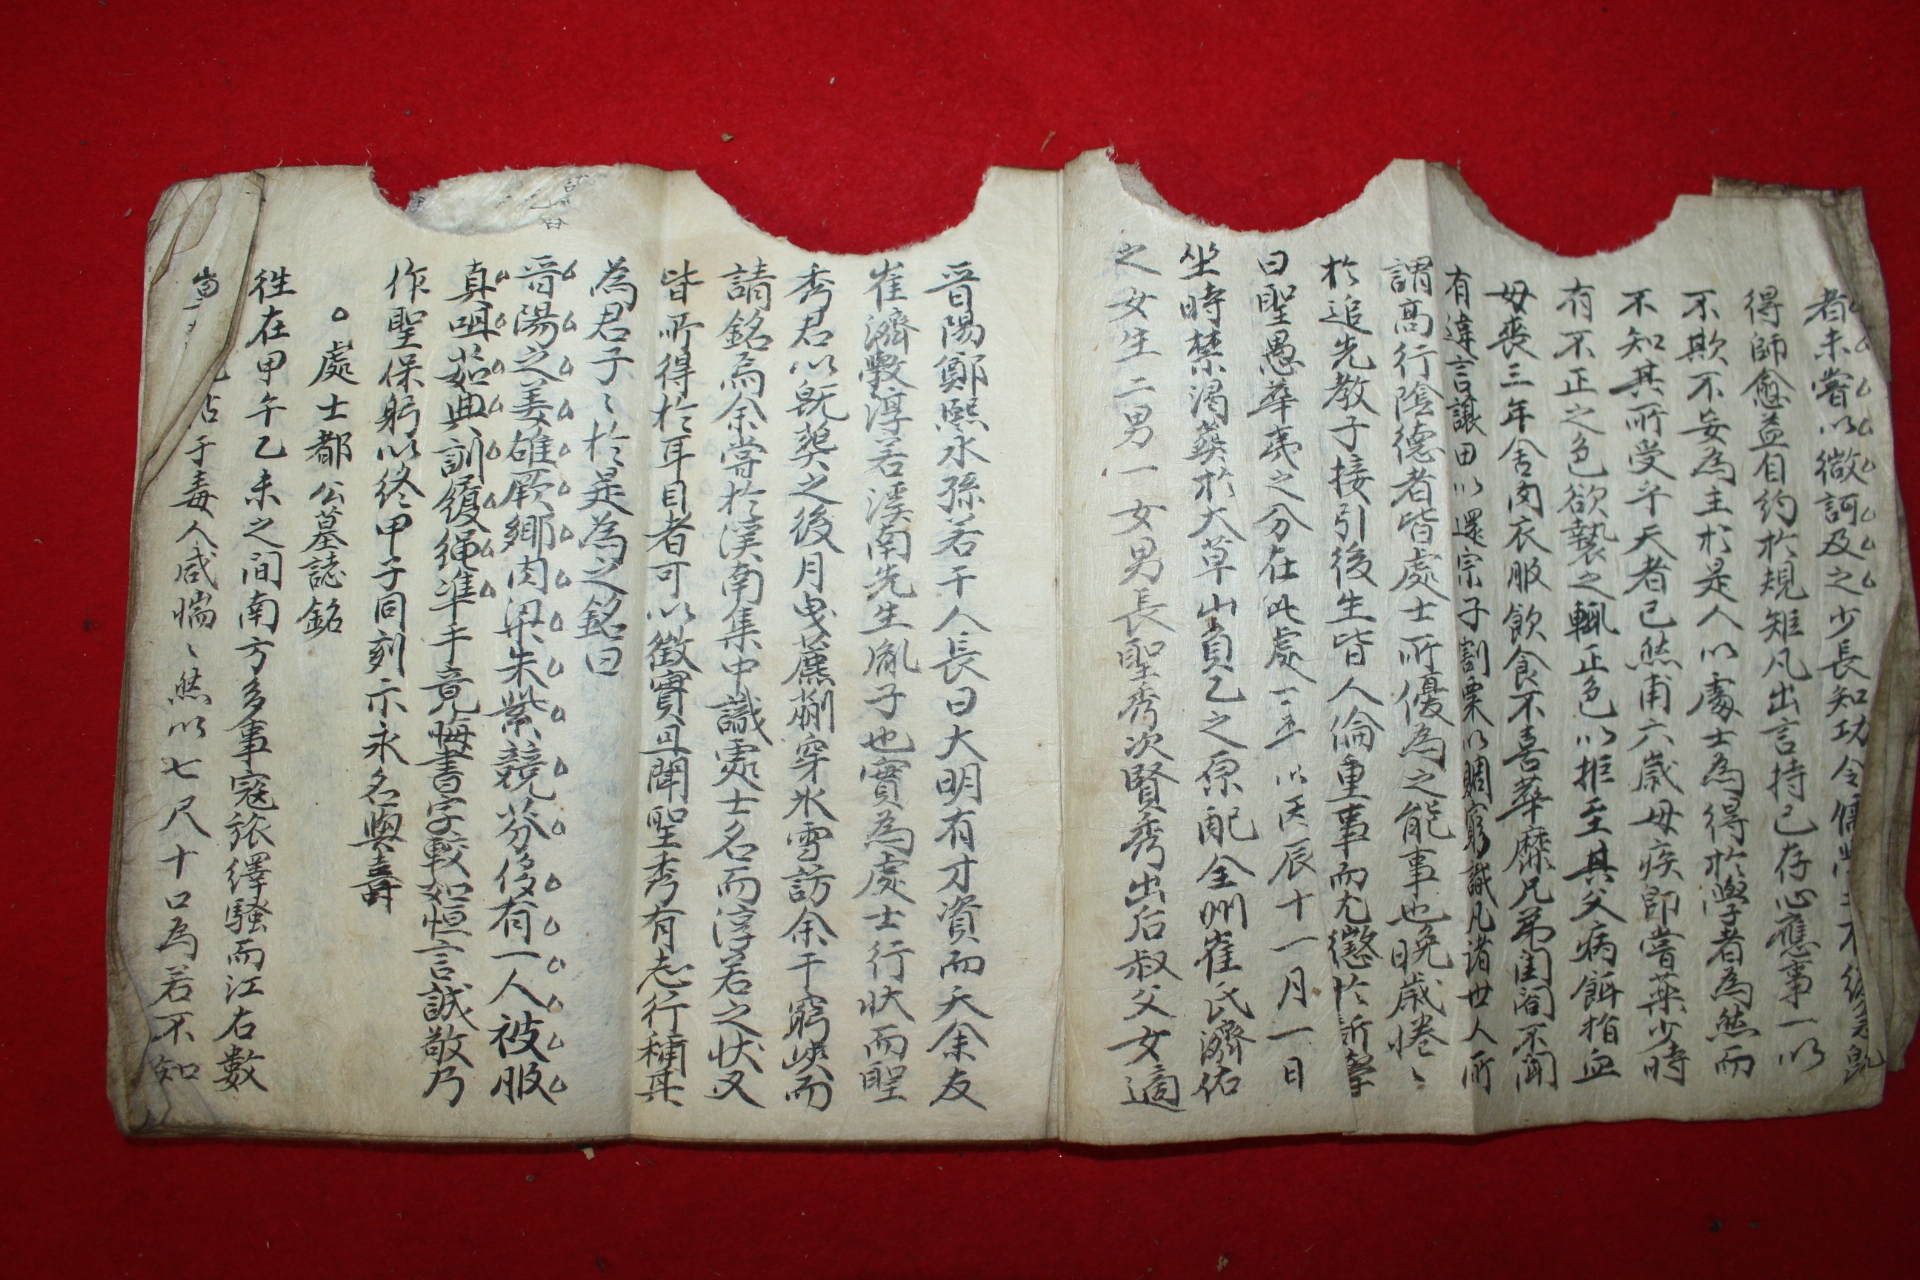 者未嘗以微訶及之少長知功令儒
得師愈益自約於規矩凡出言持己存心應事一以
不欺不妄為主於是人以處士為得於學者為然而
不知其所受乎天者已然甫六歲母疾即嘗藥少時
有不正之色欲褻之輒正色以拒至其父病餌指血
母喪三年舍肉衣服飲食不喜華靡兄弟閨閤不聞
有違言讓田以還宗子割粟以賙窮識凡諸世人所
謂高行陰德者皆處士所優為之能事也晚歲惓〻
於追先教子接引後生皆人倫重事而尤懲於新學
曰聖愚華夷之分在此處士卒以丙辰十一月一日
坐時禁渴葬於大草山負乙之原配全州崔氏濟佑
之女生二男一女男長聖秀次賢秀出后叔父女適
晉陽鄭熙永孫若干人長曰大明有才資而夭余友
崔濟斆淳若溪南先生胤子也實為處士行狀而聖
秀君以既葬之後月曳麤衰穿氷雪訪余于窮峽而
請銘焉余嘗於漢南集中識處士名而淳若之狀又
皆所得於耳目者可以徵實且聞聖秀有志行種其
為君子〻於是為之銘曰
晉陽之姜雄厥鄉肉梁朱紫競芬侈有一人被服
真咀茹典訓復繩準手竟晦書字較如恒言誠敬乃
作聖保躬以終甲子同刻示永名與壽
處士都公墓誌銘
徃在甲午乙未之间南方多事寇旅繹騷而江右數
于毒人咸惴〻然以七尺十口為若不知